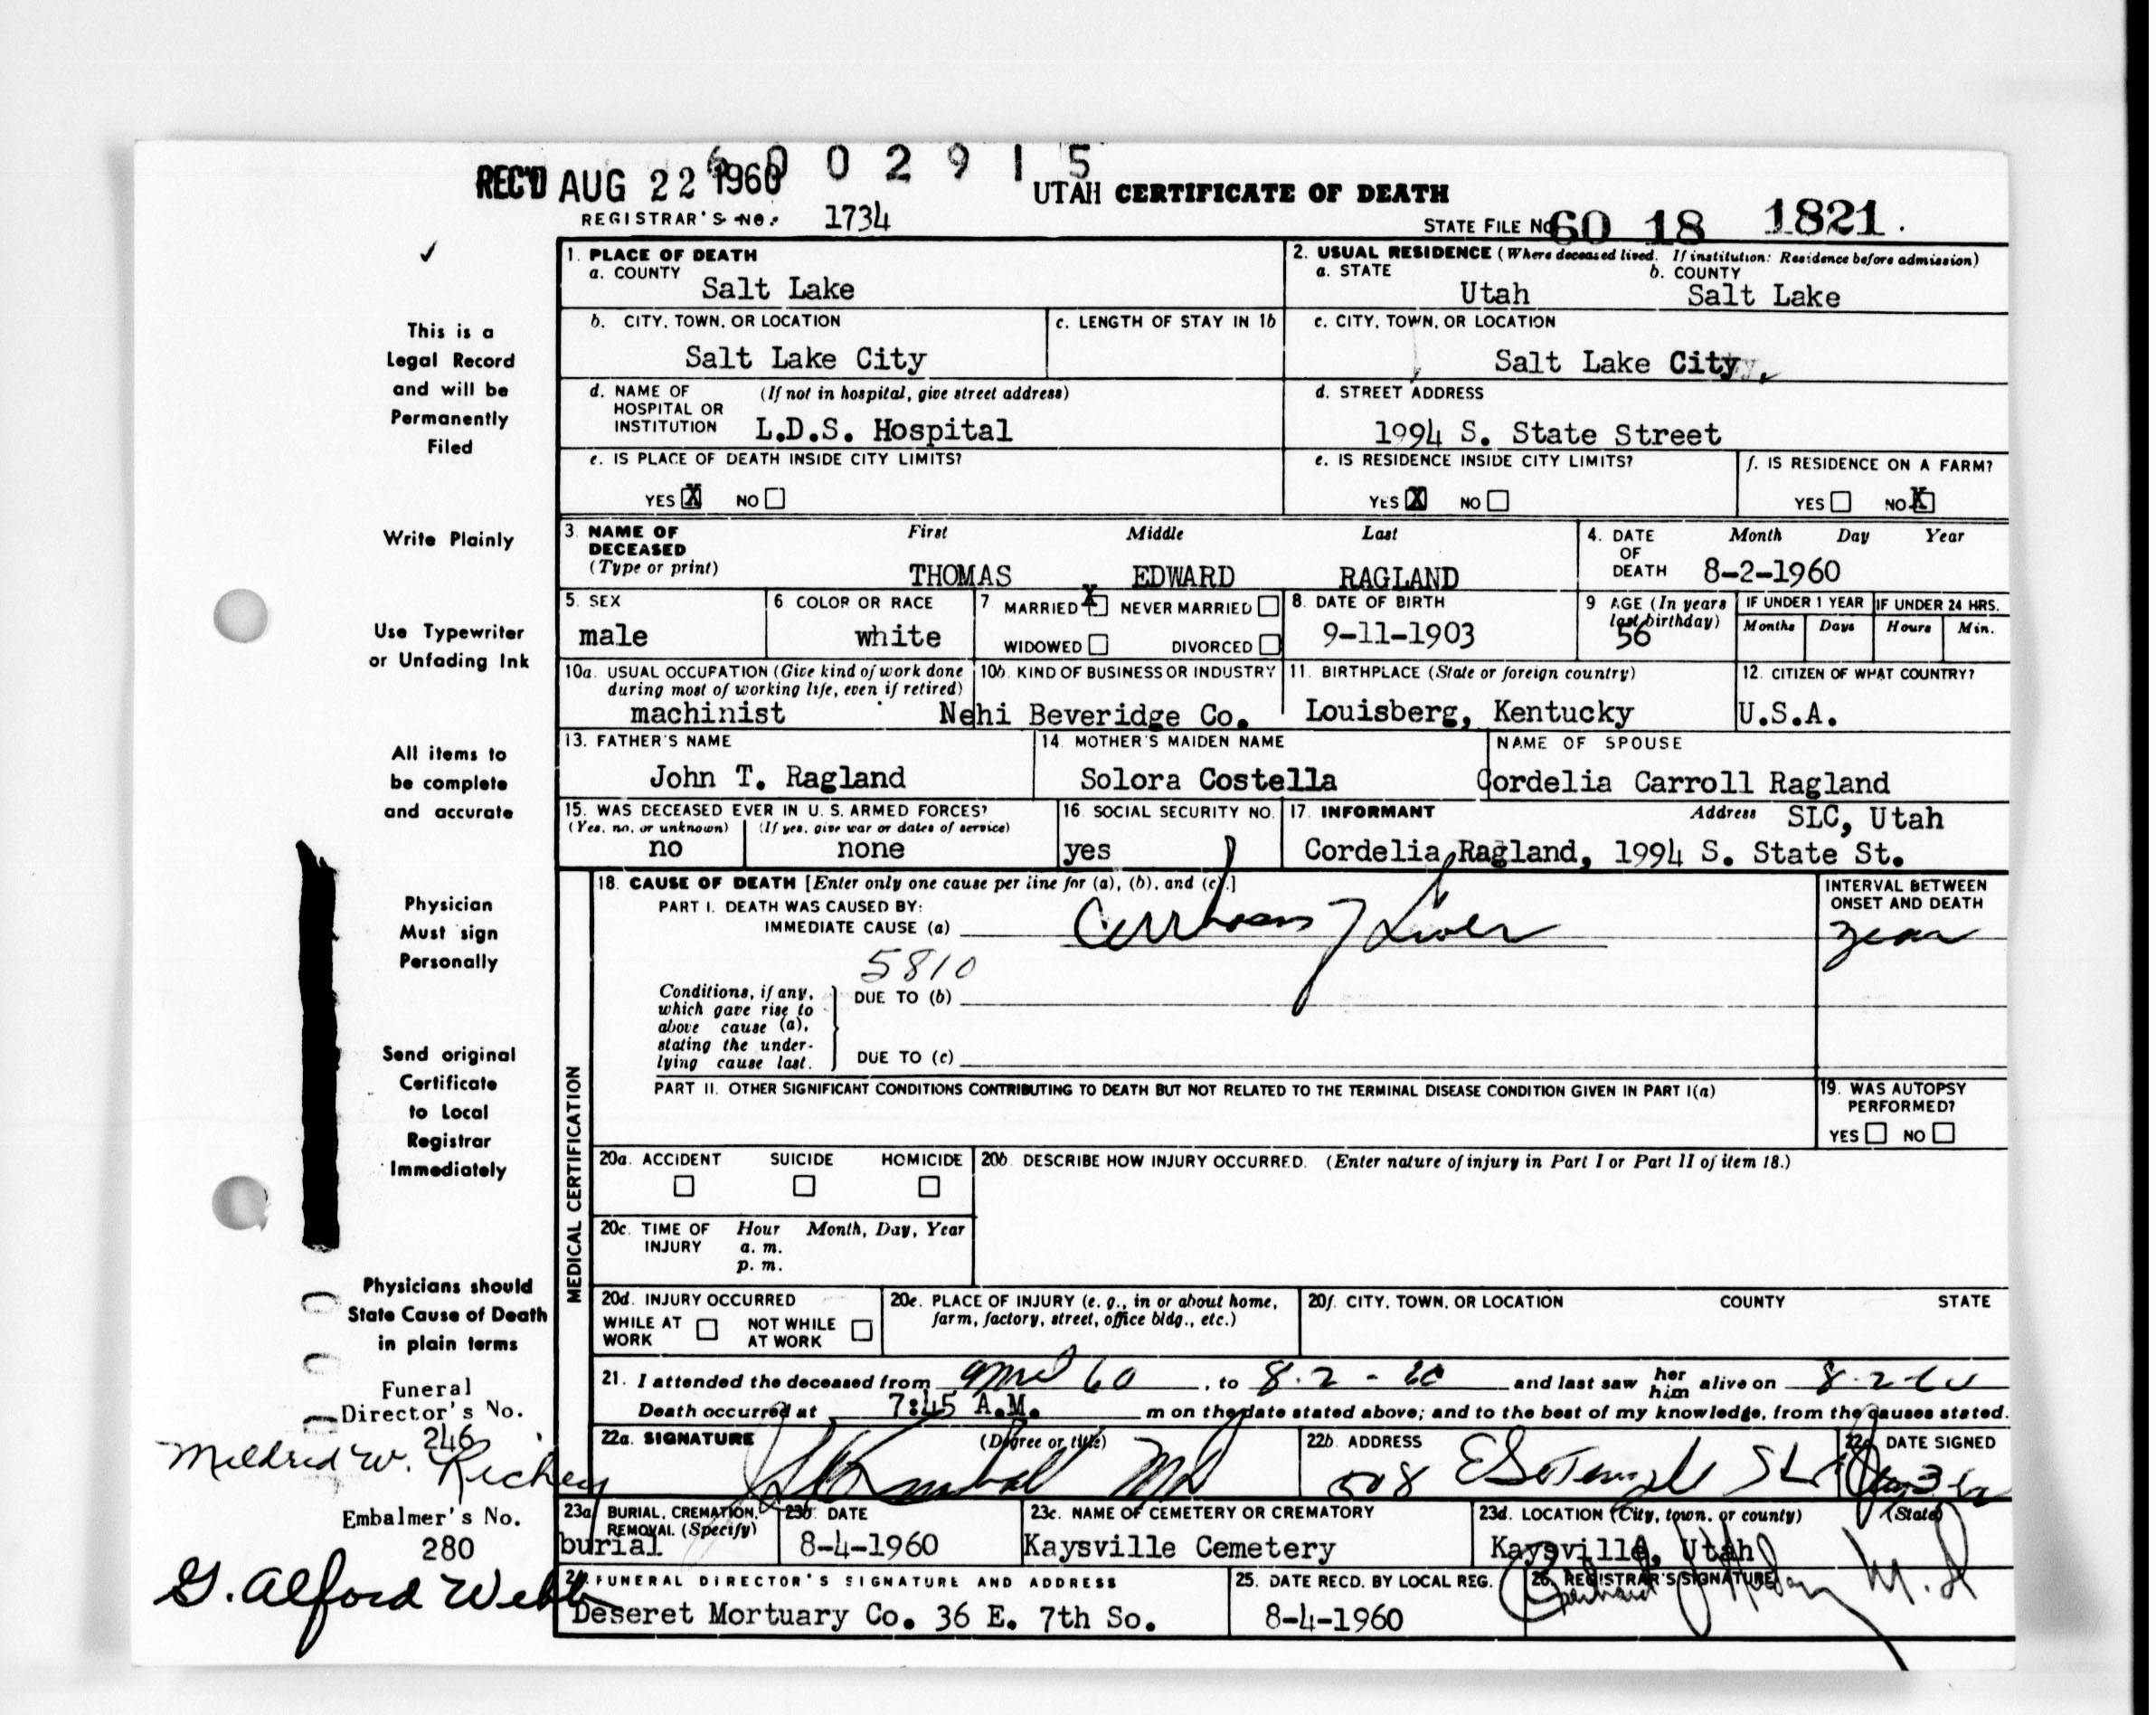 6 0 0 2 9 1 5
REC'D AUG 22 1960
UTAH CERTIFICATE OF DEATH
REGISTRAR'S NO. 1734
STATE FILE NO. 60 18 1821.
✓
This is a
Legal Record
and will be
Permanently
Filed
Write Plainly
Use Typewriter
or Unfading Ink
All items to
be complete
and accurate
Physician
Must sign
Personally
Send original
Certificate
to Local
Registrar
Immediately
Physicians should
State Cause of Death
in plain terms
Funeral
Director's No.
246
Mildred W. Richey
Embalmer's No.
280
G. Alford Webb
1. PLACE OF DEATH
a. COUNTY
Salt Lake
2. USUAL RESIDENCE (Where deceased lived. If institution: Residence before admission)
a. STATE b. COUNTY
Utah Salt Lake
b. CITY, TOWN, OR LOCATION
Salt Lake City
c. LENGTH OF STAY IN 1b
c. CITY, TOWN, OR LOCATION
Salt Lake City
d. NAME OF (If not in hospital, give street address)
HOSPITAL OR
INSTITUTION L.D.S. Hospital
d. STREET ADDRESS
1994 S. State Street
e. IS PLACE OF DEATH INSIDE CITY LIMITS?
YES X NO
e. IS RESIDENCE INSIDE CITY LIMITS?
YES X NO
f. IS RESIDENCE ON A FARM?
YES NO X
3. NAME OF First Middle Last
DECEASED
(Type or print) THOMAS EDWARD RAGLAND
4. DATE Month Day Year
OF
DEATH 8-2-1960
5. SEX
male
6 COLOR OR RACE
white
7 MARRIED X NEVER MARRIED
WIDOWED DIVORCED
8. DATE OF BIRTH
9-11-1903
9 AGE (In years
last birthday)
56
IF UNDER 1 YEAR
Months Days
IF UNDER 24 HRS.
Hours Min.
10a. USUAL OCCUPATION (Give kind of work done
during most of working life, even if retired)
machinist
10b. KIND OF BUSINESS OR INDUSTRY
Nehi Beveridge Co.
11. BIRTHPLACE (State or foreign country)
Louisberg, Kentucky
12. CITIZEN OF WHAT COUNTRY?
U.S.A.
13. FATHER'S NAME
John T. Ragland
14. MOTHER'S MAIDEN NAME
Solora Costella
NAME OF SPOUSE
Cordelia Carroll Ragland
15. WAS DECEASED EVER IN U. S. ARMED FORCES?
(Yes, no, or unknown) (If yes, give war or dates of service)
no none
16. SOCIAL SECURITY NO.
yes
17. INFORMANT Address SLC, Utah
Cordelia Ragland, 1994 S. State St.
MEDICAL CERTIFICATION
18. CAUSE OF DEATH [Enter only one cause per line for (a), (b), and (c).]
PART I. DEATH WAS CAUSED BY:
IMMEDIATE CAUSE (a) Cirrhosis of Liver
5810
Conditions, if any,
which gave rise to
above cause (a),
stating the under-
lying cause last.
DUE TO (b)
DUE TO (c)
INTERVAL BETWEEN
ONSET AND DEATH
PART II. OTHER SIGNIFICANT CONDITIONS CONTRIBUTING TO DEATH BUT NOT RELATED TO THE TERMINAL DISEASE CONDITION GIVEN IN PART I(a)
19. WAS AUTOPSY
PERFORMED?
YES NO
20a. ACCIDENT SUICIDE HOMICIDE
20b. DESCRIBE HOW INJURY OCCURRED. (Enter nature of injury in Part I or Part II of item 18.)
20c. TIME OF Hour Month, Day, Year
INJURY a. m.
p. m.
20d. INJURY OCCURRED
WHILE AT NOT WHILE
WORK AT WORK
20e. PLACE OF INJURY (e. g., in or about home,
farm, factory, street, office bldg., etc.)
20f. CITY, TOWN, OR LOCATION COUNTY STATE
21. I attended the deceased from April 60, to 8-2-60 and last saw her him alive on 8-2-60
Death occurred at 7:45 A.M. m on the date stated above; and to the best of my knowledge, from the causes stated.
22a. SIGNATURE (Degree or title)
MD
22b. ADDRESS
508 E So Temple SLC
22c. DATE SIGNED
23a. BURIAL, CREMATION,
REMOVAL (Specify)
burial
23b. DATE
8-4-1960
23c. NAME OF CEMETERY OR CREMATORY
Kaysville Cemetery
23d. LOCATION (City, town, or county) (State)
Kaysville, Utah
24. FUNERAL DIRECTOR'S SIGNATURE AND ADDRESS
Deseret Mortuary Co. 36 E. 7th So.
25. DATE RECD. BY LOCAL REG.
8-4-1960
26. REGISTRAR'S SIGNATURE
M.D.